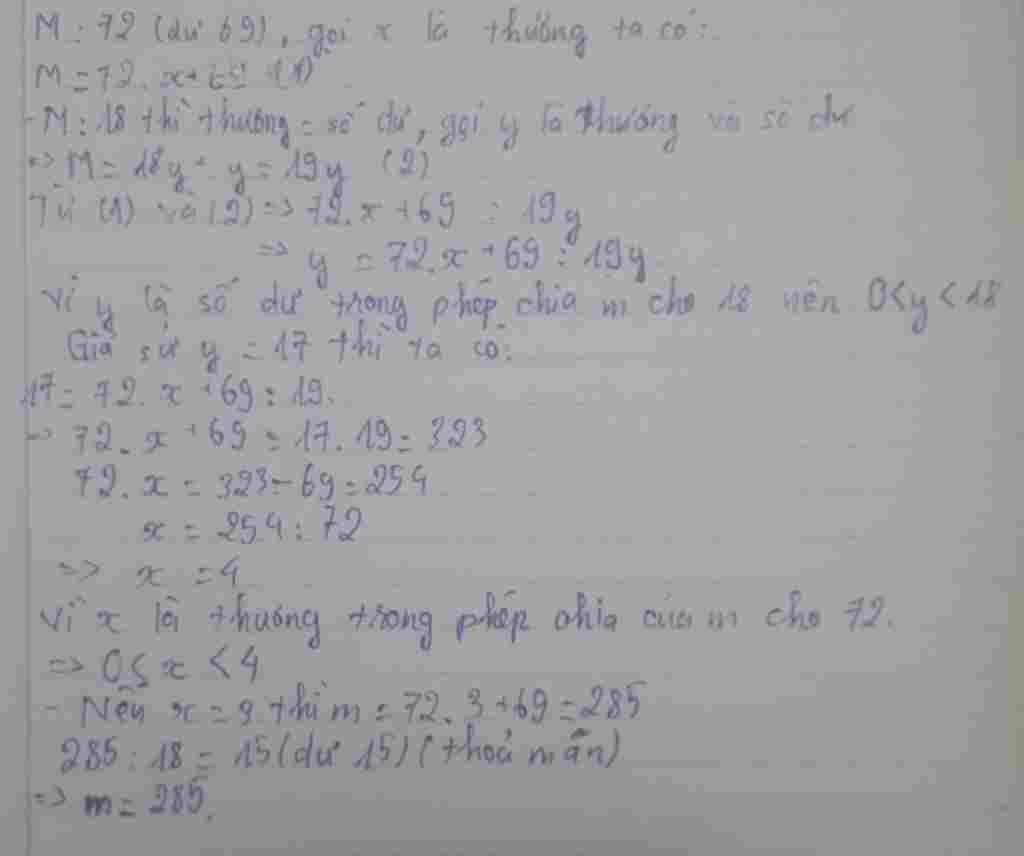 M : 72 (dư 69), gọi x là thương ta có:
M = 72. x + 69 (1)
- M : 18 thì thương = số dư, gọi y là thương và số dư
=> M = 18y + y = 19y (2)
Từ (1) và (2) => 72.x + 69 = 19y
=> y = 72.x + 69 : 19y
Vì y là số dư trong phép chia m cho 18 nên 0 < y < 18
Giả sử y = 17 thì ta có:
17 = 72. x + 69 : 19.
=> 72. x + 69 = 17. 19 = 323
72. x = 323 - 69 = 254
x = 254 : 72
=> x = 4
Vì x là thương trong phép chia của m cho 72.
=> 0 ≤ x < 4
- Nếu x = 3 thì m = 72. 3 + 69 = 285
285 : 18 = 15 (dư 15) (thoả mãn)
=> m = 285.